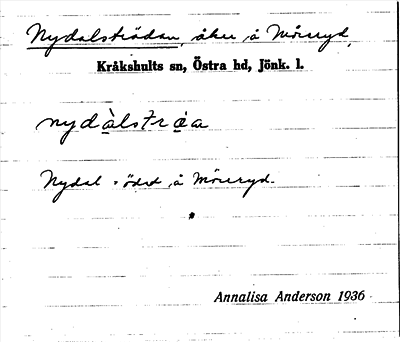 Nydalsträdan, åker å Möcryd,
Kråkshults sn, Östra hd, Jönk. l.
nydàlstrǽa
Nydal = öded å Möcryd.
Annalisa Anderson 1936